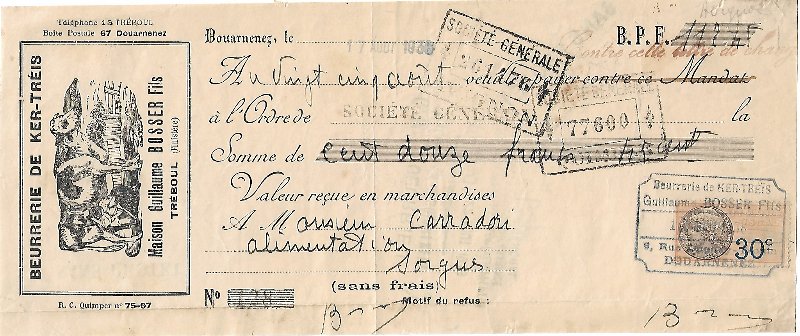 Téléphone 13 TRÉBOUL
Boîte Postale 67 Douarnenez
BEURRERIE DE KER-TRÉIS
Maison Guillaume BOSSER Fils
TRÉBOUL (Finistère)
R. C. Quimper n° 75-67
Douarnenez, le 17 AOUT
B. P. F.
SOCIÉTÉ-GÉNÉRALE
Contre cette
Au Vingt cinq août payer contre ce Mandat
à l'Ordre de SOCIÉTÉ GÉNÉRALE la
77600
Somme de Cent douze francs
Valeur reçue en marchandises
A Monsieur Carradori
alimentation
Sorgues
(sans frais)
N°
Motif du refus :
Beurrerie de KER-TREIS
Guillaume BOSSER Fils
30c
DOUARNENEZ